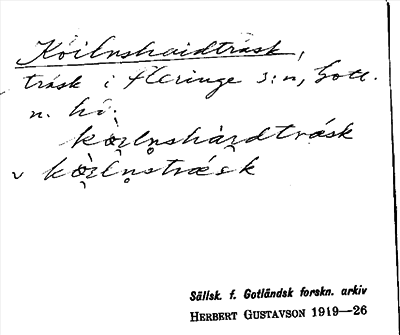 Köilnshaidträsk,
träsk i Fleringe s:n, Gotl.
n. hä.
kö̀ı̣lnshàrdträsk
v kö̀ı̣lnstræsk
Sällsk. f. Gotländsk forskn. arkiv
HERBERT GUSTAVSON 1919—26